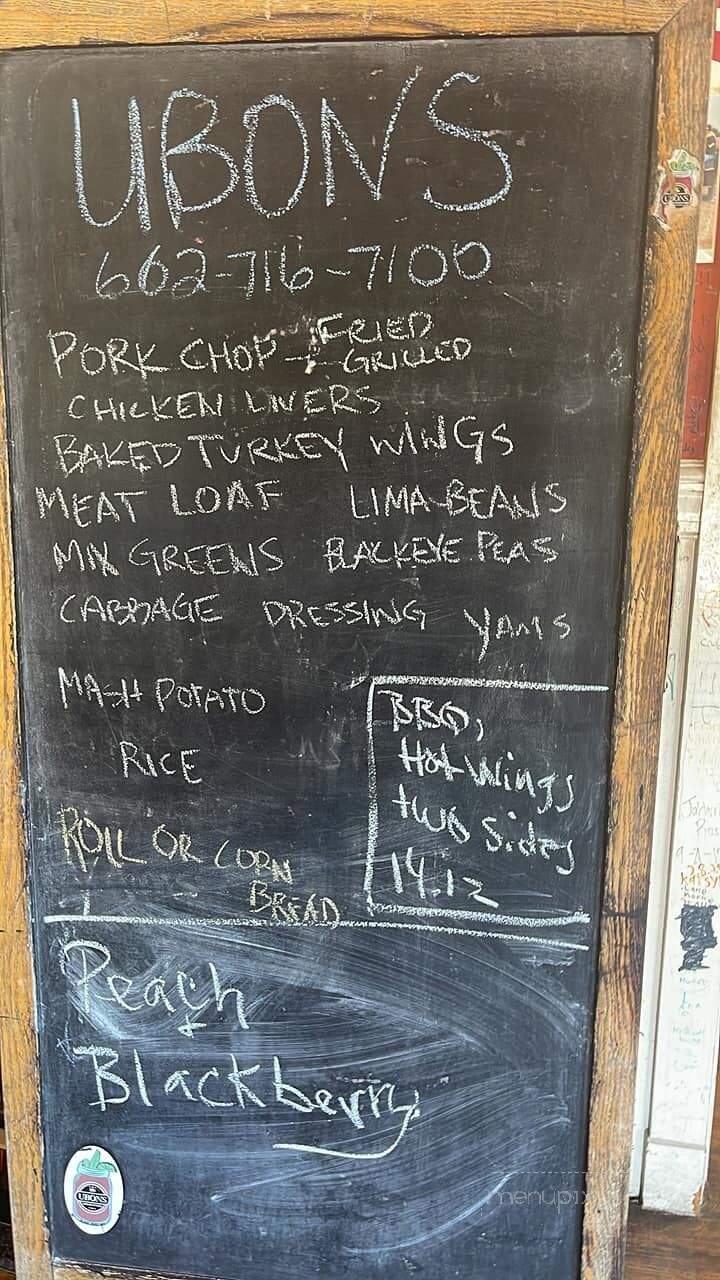 UBON'S
662-716-7100
PORK CHOP - FRIED
- GRILLED
CHICKEN LIVERS
BAKED TURKEY WINGS
MEAT LOAF LIMA-BEANS
MIX GREENS BLACKEYE PEAS
CABBAGE DRESSING YAMS
MASH POTATO
RICE
BBQ,
Hot Wings
two Sides
14.12
ROLL OR CORN
BREAD
Peach
+
Blackberry
UBONS
UBONS
menupix